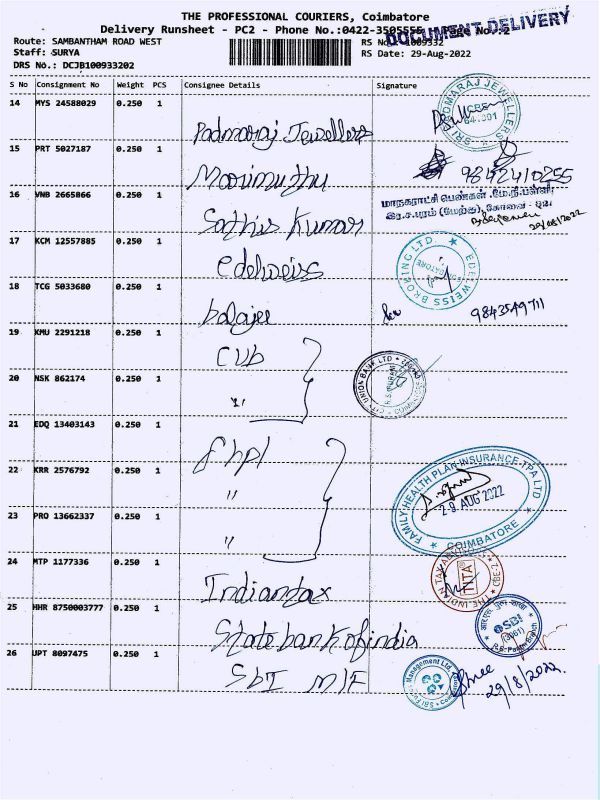 THE PROFESSIONAL COURIERS, Coimbatore
Delivery Runsheet - PC2 - Phone No.:0422-3505555 Page No.:2
DOCUMENT DELIVERY
Route: SAMBANTHAM ROAD WEST
RS No.: 1009332
Staff: SURYA
RS Date: 29-Aug-2022
DRS No.: DCJB100933202
S No Consignment No Weight PCS Consignee Details Signature
14 MYS 24588029 0.250 1 Padmaraj Jewellers
SRI PADMARAJ JEWELLERS CBE 641001
15 PRT 5027187 0.250 1 Marimuthu 9842410255
16 VNB 2665866 0.250 1 Sathis Kumar
மாநகராட்சி பெண்கள் மே.நி.பள்ளி
இர.ச.புரம் (மேற்கு), கோவை - 2
29/08/2022
17 KCM 12557885 0.250 1 Edelweiss
EDELWEISS BROKING LTD. COIMBATORE
18 TCG 5033680 0.250 1 balajee 9843549711
19 KMU 2291218 0.250 1 CUB
CITY UNION BANK LTD
20 NSK 862174 0.250 1 "
21 EDQ 13403143 0.250 1 Fhpl
22 KRR 2576792 0.250 1 "
FAMILY HEALTH PLAN INSURANCE TPA LTD
29 AUG 2022
COIMBATORE
23 PRO 13662337 0.250 1 "
24 MTP 1177336 0.250 1 Indiantax
TNTA CBE-2
25 HHR 8750003777 0.250 1 State bank of india
SBI
26 UPT 8097475 0.250 1 SbI M/F
Management Ltd.
29/8/2022